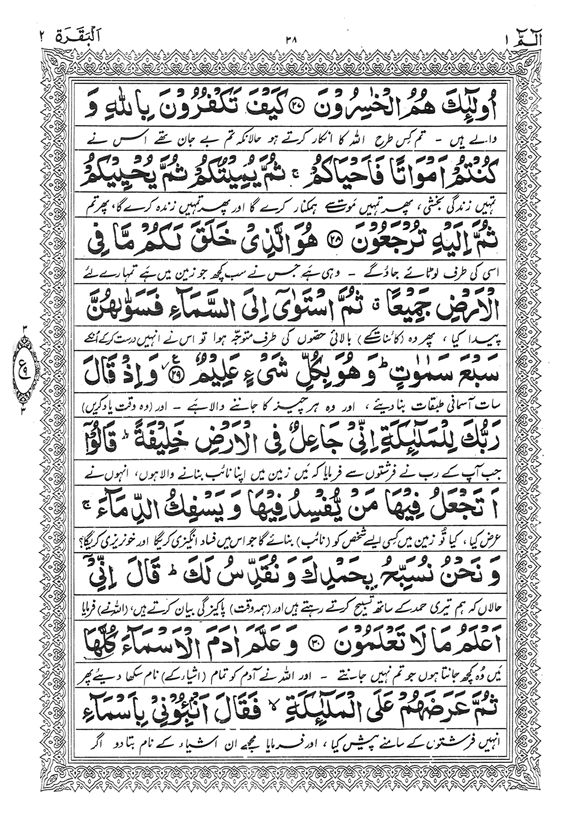 الٓمّٓ ١ ٣٨ اَلْبَقَرَة ٢
اُولٰٓئِكَ هُمُ الْخٰسِرُوْنَ ﴿۲۷﴾ كَيْفَ تَكْفُرُوْنَ بِاللّٰهِ وَ
والے ہیں ۔ تم کس طرح اللہ کا انکار کرتے ہو حالانکہ تم بے جان تھے اس نے
كُنْتُمْ اَمْوَاتًا فَاَحْيَاكُمْ ۚ ثُمَّ يُمِيْتُكُمْ ثُمَّ يُحْيِيْكُمْ
تمہیں زندگی بخشی، پھر تمہیں موت سے ہمکنار کرے گا اور پھر تمہیں زندہ کرے گا، پھر تم
ثُمَّ اِلَيْهِ تُرْجَعُوْنَ ﴿۲۸﴾ هُوَ الَّذِيْ خَلَقَ لَكُمْ مَّا فِى
اسی کی طرف لوٹائے جاؤ گے ۔ وہی ہے جس نے سب کچھ جو زمین میں ہے تمہارے لئے
الْاَرْضِ جَمِيْعًا ۗ ثُمَّ اسْتَوٰٓى اِلَى السَّمَآءِ فَسَوّٰىهُنَّ
پیدا کیا، پھر وہ (کائنات کے) بالائی حصوں کی طرف متوجہ ہوا تو اس نے انہیں درست کر کے انکے
سَبْعَ سَمٰوٰتٍ ؕ وَهُوَ بِكُلِّ شَىْءٍ عَلِيْمٌ ﴿۲۹﴾ ع وَاِذْ قَالَ
سات آسمانی طبقات بنا دیئے، اور وہ ہر چیز کا جاننے والا ہے ۔ اور (وہ وقت یاد کریں)
٣
ع ٩
٣
رَبُّكَ لِلْمَلٰٓئِكَةِ اِنِّيْ جَاعِلٌ فِى الْاَرْضِ خَلِيْفَةً ؕ قَالُوْٓا
جب آپ کے رب نے فرشتوں سے فرمایا کہ میں زمین میں اپنا نائب بنانے والا ہوں، انہوں نے
اَتَجْعَلُ فِيْهَا مَنْ يُّفْسِدُ فِيْهَا وَيَسْفِكُ الدِّمَآءَ ۚ
عرض کیا، کیا تُو زمین میں کسی ایسے شخص کو (نائب) بنائے گا جو اس میں فساد انگیزی کریگا اور خونریزی کریگا؟
وَنَحْنُ نُسَبِّحُ بِحَمْدِكَ وَنُقَدِّسُ لَكَ ؕ قَالَ اِنِّيْٓ
حالاں کہ ہم تیری حمد کے ساتھ تسبیح کرتے رہتے ہیں اور (ہمہ وقت) پاکیزگی بیان کرتے ہیں، (اللہ نے) فرمایا
اَعْلَمُ مَا لَا تَعْلَمُوْنَ ﴿۳۰﴾ وَعَلَّمَ اٰدَمَ الْاَسْمَآءَ كُلَّهَا
میں وہ کچھ جانتا ہوں جو تم نہیں جانتے ۔ اور اللہ نے آدم کو تمام (اشیاء کے) نام سکھا دیئے پھر
ثُمَّ عَرَضَهُمْ عَلَى الْمَلٰٓئِكَةِ ۙ فَقَالَ اَنْۢبِـُٔوْنِيْ بِاَسْمَآءِ
انہیں فرشتوں کے سامنے پیش کیا، اور فرمایا مجھے ان اشیاء کے نام بتا دو اگر